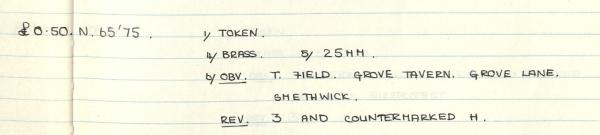 £0.50. N. 65'75. 1/ TOKEN.
4/ BRASS. 5/ 25MM.
6/ OBV. T. FIELD. GROVE TAVERN. GROVE LANE.
SMETHWICK.
REV. 3 AND COUNTERMARKED H.